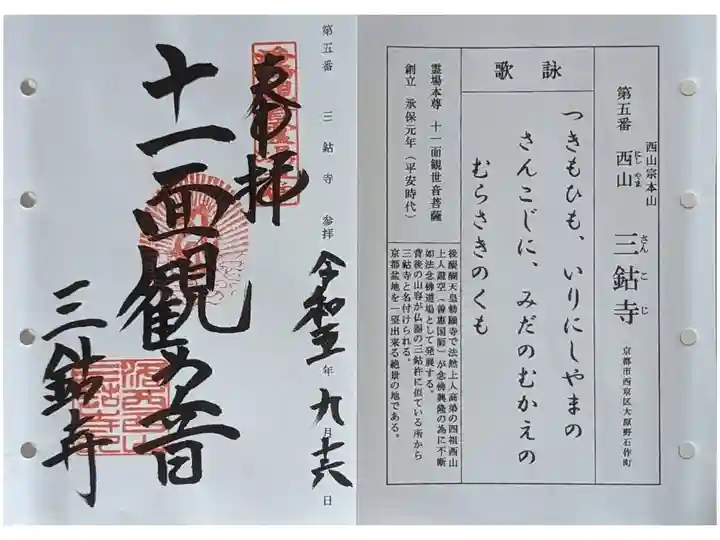 西山宗本山
第五番 西山 三鈷寺
にし やま
さん こ じ
京都市西京区大原野石作町
詠歌
つきもひも、いりにしやまの
さんこじに、みだのむかえの
むらさきのくも
霊場本尊 十一面観世音菩薩
創立 承保元年（平安時代）
後醍醐天皇勅願寺で法然上人高弟の四祖西山
上人證空（善恵国師）が念佛興隆の為に不断
如法念佛道場として発展する。
背後の山容が仏器の三鈷杵に似ている所から
三鈷寺と名付けられる。
京都盆地を一望出来る絶景の地である。
第五番 三鈷寺 参拝 令和五年九月十六日
奉拝
十一面観世音
三鈷寺